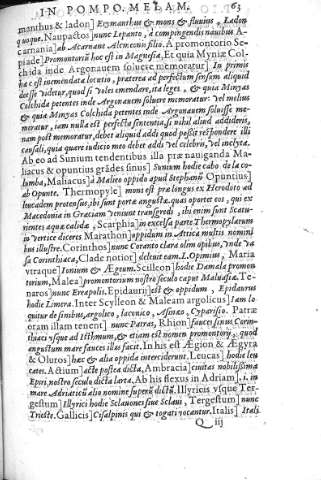 IN POMPO. MELAM. 63
manthus & ladon] Erymanthus & mons & fluuius, Ladon
quoque. Naupactos] nunc Lepanto, a compingendis nauibus A-
carnania] ab Acarnane Alcmeonis filio. A promontorio Sep-
piade] Promontorii hoc est in Magnesia, Et quia Myniæ Col-
chida inde Argonauem soluere memoratur] In primis
ha c est inemendata locutio, præterea ad perfectum sensum aliquid
deesse videtur, quod si voles emendare, ita leges, & quia Minyas
Colchida petentes inde Argonauem soluere memoratur: vel melius
& quia Minyas Colchida petentes inde Argonauem soluisse me-
moratur, iam nulla est perfecta sententia, si nihil aliud addideris,
nam post memoratur, debet aliquid addi quod possit respondere illi
causali, quia quare iudicio meo debet addi vel celebris, vel inclyta.
Ab eo ad Sunium tendentibus illa præ nauiganda Ma-
liacus & opuntius grādes sinus] Sunium hodie cabo de la co-
lumba, Maliacus] à Malieo oppido apud Stephanū Opuntius]
ab Opunte. Thermopyle] mons est prælongus ex Herodoto ad
leucadem protensus, ibi sunt portæ angustæ quas oportet eos, qui ex
Macedonia in Græciam veniunt transgredi, ibi enim sunt Scatu-
rientes aquæ calidæ, Scarphia] in excelsa parte Thermopylarum
in vertice deceris Marathon] oppidum in Attica multis nomini
bus illustre. Corinthos] nunc Coranto clara olim opibus, vnde va
sa Corinthiaca, Clade notior] deleuit eam. L. Opimius, Maria
vtraque] Ionium & Ægeum. Scilleon] hodie Damala promon-
torium, Malea] promontorium nostro seculo caput Maluasiæ. Te-
naros] nunc Errapolis. Epidaurij] est & oppidum, Epidaurus
hodie Limera. Inter Scylleon & Maleam argolicus] Iam lo-
quitur de sinibus, argolico, laconico, Asinæo, Cyparisio. Patræ
oram illam tenent] nunc Patras, Rhion] fauces sinus Corin-
thiaci vsque ad isthmum, & etiam est nomen promontory, quod
angustum mary fauces illas facit. In his est Ægion & Ægyra
& Oluros] hæc & alia oppida interciderunt. Leucas] hodie leu
cates. Actium] acte postea dicta, Ambracia] ciuitas nobilissima
Epiri, nostro seculo dicta larta. Ab his flexus in Adriam]. i. in
mare Adriaticū alio nomine superū dictū. Illyricis vsque Ter-
gestum] Illyrici hodie Sclauones siue Sclaui, Tergestum] nunc
Trieste. Gallicis] Cisalpinis qui & togati vocantur. Italis] Itali.
Q iij